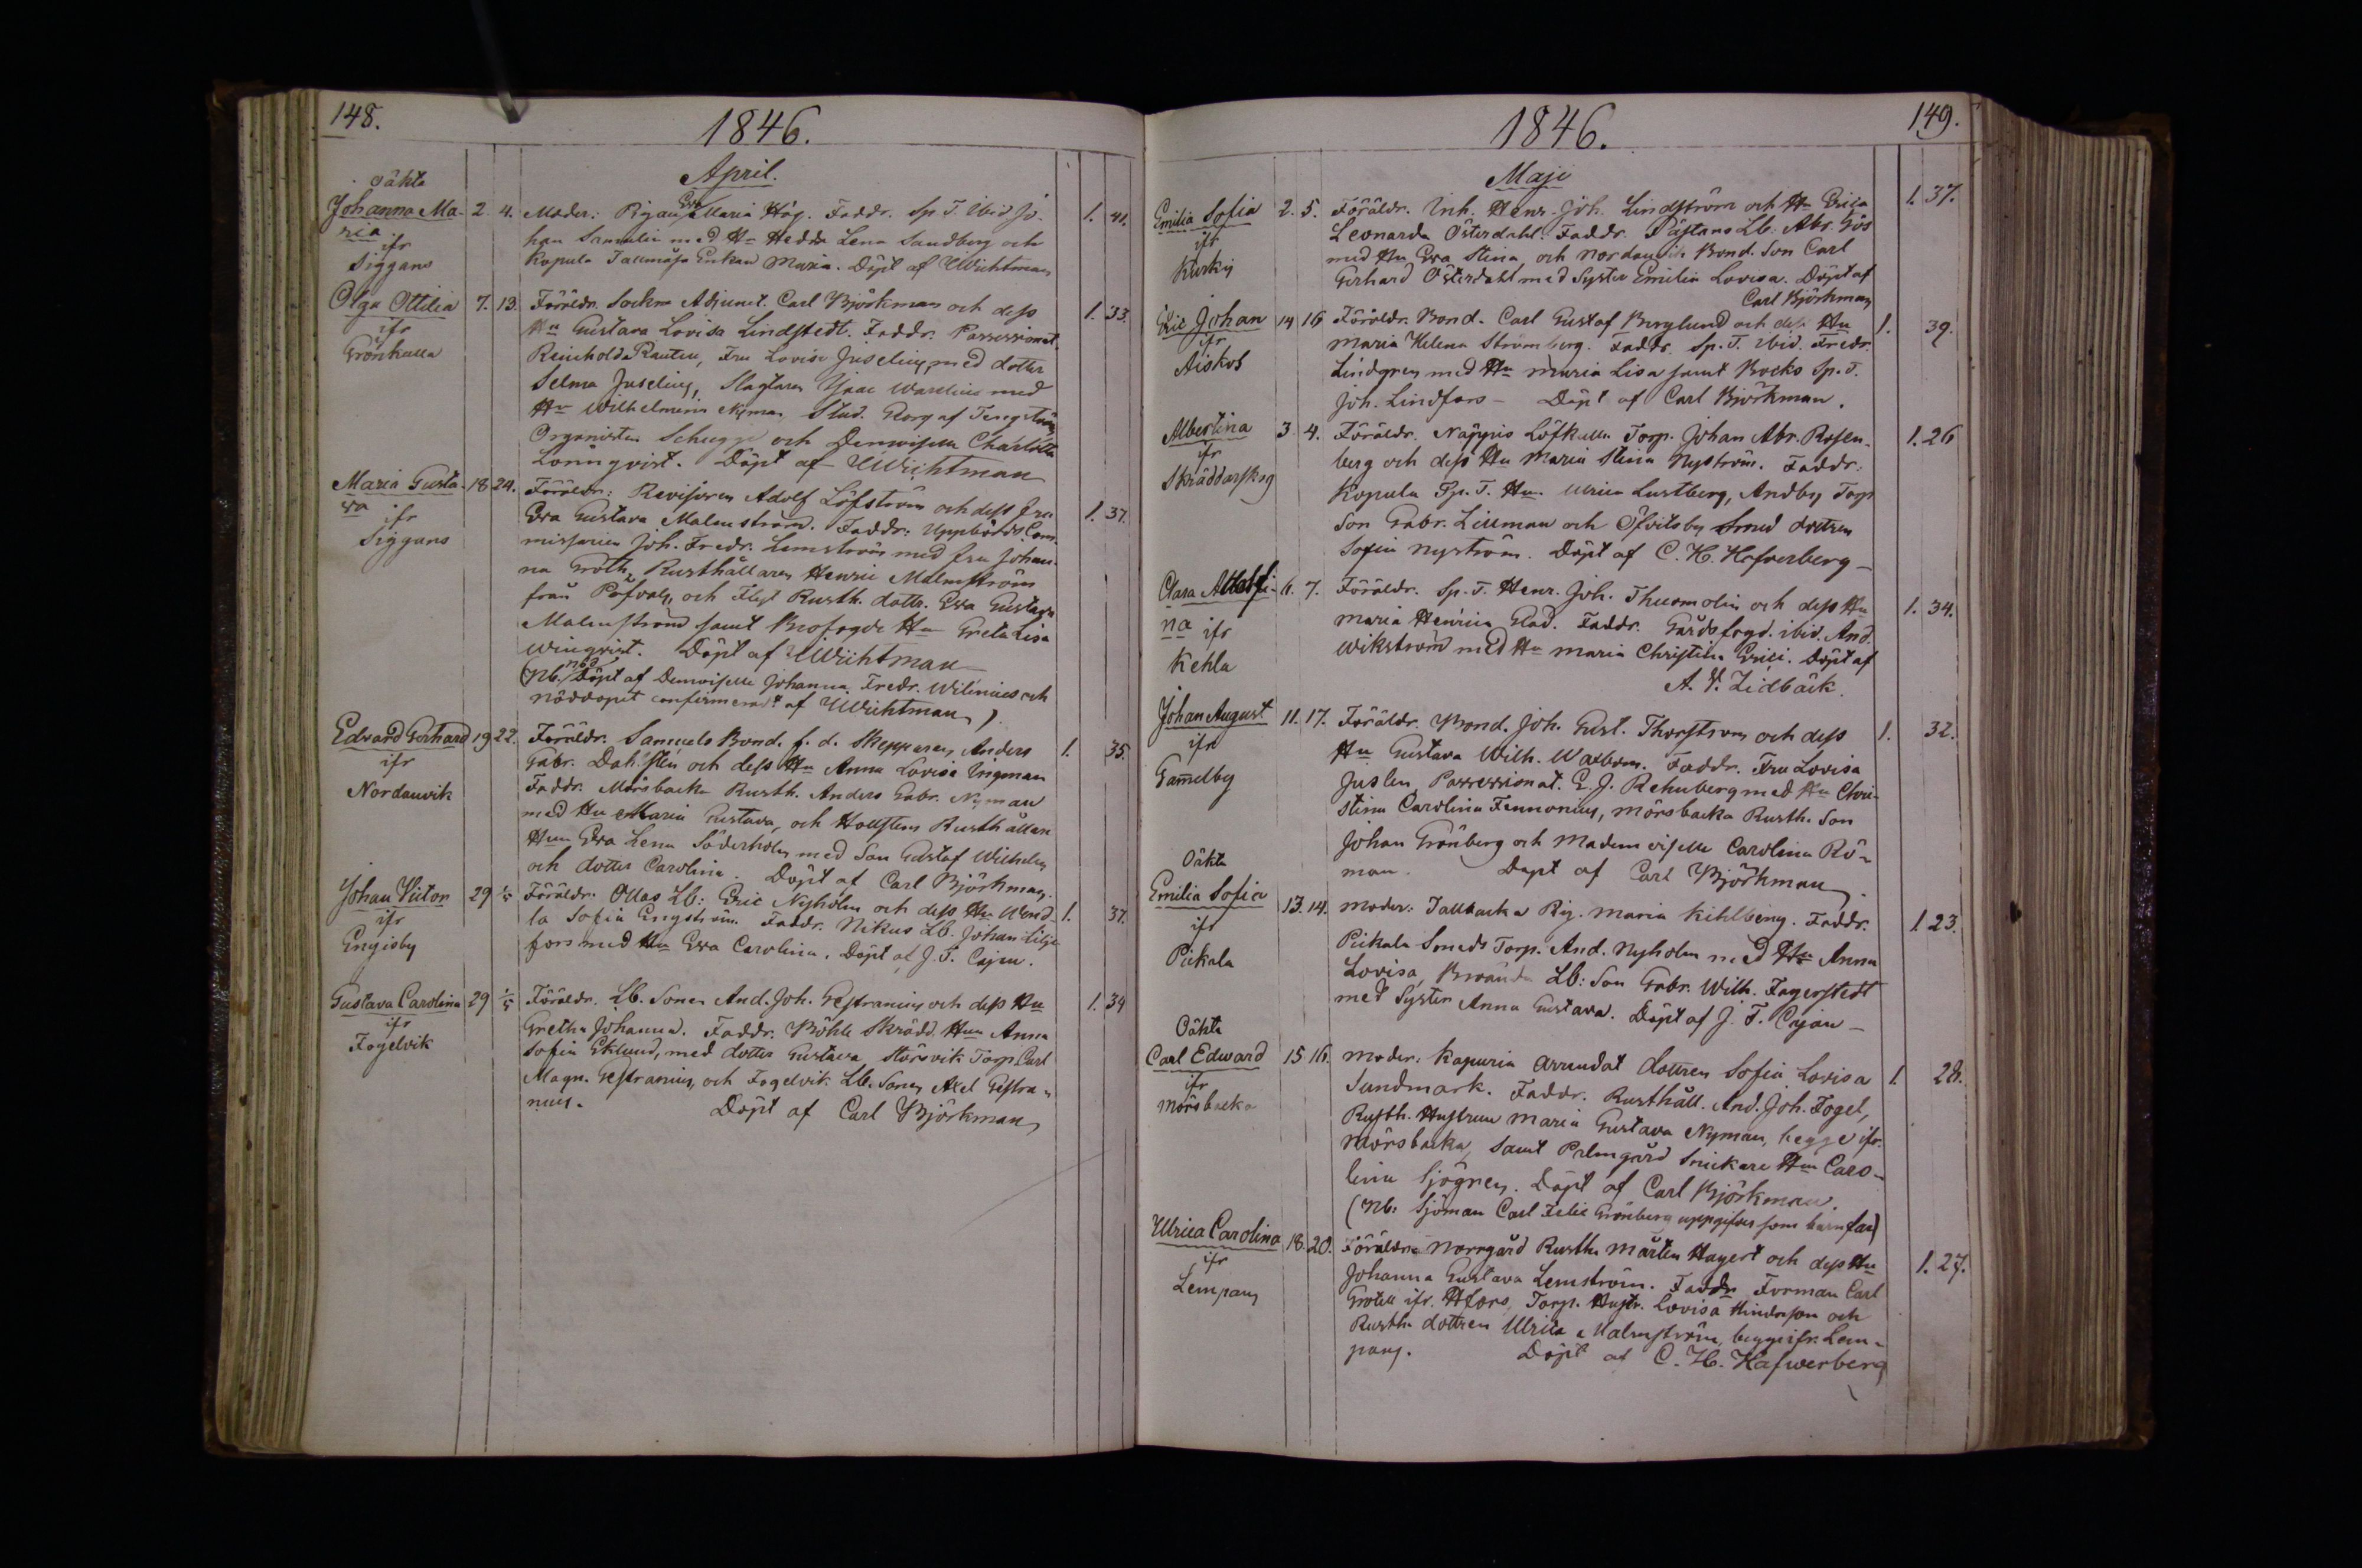 148.
1846.
April.
oäkta
Johanna Ma- 2. 4. Moder: Pigan Eva Maria Hög. Faddr. Sp. T. ibid. Jo- 1. 41.
ria han Samulin med Hu Hedda Lena Sandberg och
ifr Kopula Tallmåsa Enkan Maria. Döpt af Wichtman
Siggans
Olga Ottilia 7. 13. Föräldr. Sockne Adjunct. Carl Björkman och dess 1. 33.
ifr Hu Gustava Lovisa Lindstedt. Faddr. Possessionat.
Grönkulla Reinhold Rauten, Fru Lovisa Juselius, med dotter
Selma Juselius, Slagtaren Isaac Warelius med
Hu Wilhelmina Nyman, Stud. Georg af Tengström,
Organisten Schugge och Demoiselle Charlotta
Lönnqvist. Döpt af Wichtman
Maria Gusta- 18 24. Föräldr: Revisoren Adolf Löfström och dess Fru 1. 37.
va Eva Gustava Malmström. Faddr: Uppbörds Com-
ifr missarien Joh. Fredr. Lemström med fru Johan-
Siggans na Groth, Rusthållaren Henric Malmström
från Påfvals, och Flyt Rusth. dottr. Eva Gustava
Malmström samt Brofogde Hu Greta Lisa
Winqvist. Döpt af Wichtman
(Nb. nöd Döpt af Demoiselle Johanna Fredr. Wilenius och
nöddopet confirmeradt af Wichtman).
Edvard Gerhard 19 22. Föräldr. Samuels Bond. f. d. Skepparen Anders 1. 35.
ifr Gabr. Dahlsten och dess Hu Anna Lovisa Ingman
Nordanvik Faddr. Mörsbacka Rusth. Anders Gabr. Nyman
med Hu Maria Gustava, och Hollstens Rusthållare
Hun Eva Lena Söderholm med Son Gustaf Wilhelm
och dotter Carolina. Döpt af Carl Björkman.
Johan Victor 29 1/5 Föräldr. Ollas Lb: Eric Nyholm och dess Hu Wend- 1. 37.
ifr la Sofia Engström. Faddr. Nikus Lb. Johan Lilje
Engisby fors med Hu Eva Carolina. Döpt af J. T. Cajan.
Gustava Carolina 29 1/5 Föräldr. Lb. Sonen And. Joh. Gestranius och dess Hu 1. 34
ifr Gretha Johanna. Faddr. Böhle Skrädd. Hun Anna
Fogelvik Sofia Eklund, med dotter Gustava, Störsvik Torp. Carl
Magn. Gestranius, och Fogelvik Lb. Sonen Axel Gestra-
nius. Döpt af Carl Björkman
149.
1846.
Maji
Emilia Sofia 2. 5. Föräldr. Inh. Henr. Joh. Lindström och Hu Erica 1. 37.
ifr Leonarda Österdahl. Faddr. Lb: Abr. Gös
Kurkis med Hu Eva Stina, och Nordanvik Bond. Son Carl
Gerhard Österdahl med Syster Emilia Lovisa. Döpt af
Carl Björkman
Eric Johan 14 16 Föräldr. Bond. Carl Gustaf Berglund och dess Hu 1. 39.
ifr Maria Helena Strömberg. Faddr. Sp. T. ibid. Fredr.
Aiskos Lindgren med Hu Maria Lisa samt Bocks Sp. T.
Joh. Lindfors - Döpt af Carl Björkman.
Albertina 3 4. Föräldr. Näppis Löfkulla Torp. Johan Abr. Rosen- 1. 26
ifr berg och dess Hu Maria Stina Nyström. Faddr:
Skräddarskog Kopula Sp. T. Hu. Ulrica Lustberg, Andby Torp
Son Gabr. Lillman och Öfvitsby Smed dottren
Sofia Nyström. Döpt af C. H. Hafverberg -
Clara Adolfi- 6. 7. Föräldr. Sp. T. Henr. Joh. Thuomolin och dess Hu 1. 34.
na ifr Maria Henrica Glad. Faddr. Gårdsfogd. ibid. And.
Kehla Wikström med Hu Maria Christina Erici. Döpt af
A. V. Lidbäck.
Johan August 11. 17. Föräldr. Bond. Joh. Gust. Thorström och dess 1. 32.
ifr Hu Gustava Wilh. Waxbom. Faddr. Fru Lovisa
Gam̄elby Juslen, Possessionat. E. J. Rehnberg med Hu Chri-
stina Carolina Fennonius, Mörsbacka Rusth. Son
Johan Grönberg och Mademoiselle Carolina Rö-
man. Döpt af Carl Björkman.
Oäkta
Emilia Sofia 13. 14. Moder: Tallbacka Pig. Maria Kihlberg. Faddr. 1. 23.
ifr Pickala Smeds Torp. And. Nyholm med Hu Anna
Pickala Lovisa, Lb: Son Gabr. Wilh. Fagerstedt
med Syster Anna Gustava. Döpt af J. T. Cajan -
Oäkta
Carl Edward 15 16. Moder: Kapuria Arrendat. dottren Sofia Lovisa 1. 28.
ifr Sandmark. Faddr. Rusthåll. And. Joh. Fogel,
Mörsbacka Rusth. Hustrun Maria Gustava Nyman, begge ifr.
Mörsbacka, samt Palmgård Snickare Hun Caro-
lina Sjögren. Döpt af Carl Björkman.
(Nb: Sjöman Carl Felic Grönberg uppgifves som barnfar)
Ulrica Carolina 18. 20. Föräldr. Norrgård Rusth. Mårten Hagert och dess Hu 1. 27.
ifr Johanna Gustava Lemström. Faddr. Forman Carl
Lempans Grotell ifr. Hfors, Torp. Hustr. Lovisa Hindrsson och
Rusth. dottren Ulrica Malmström, begge ifr. Lem-
pans. Döpt af C. H. Hafwerberg